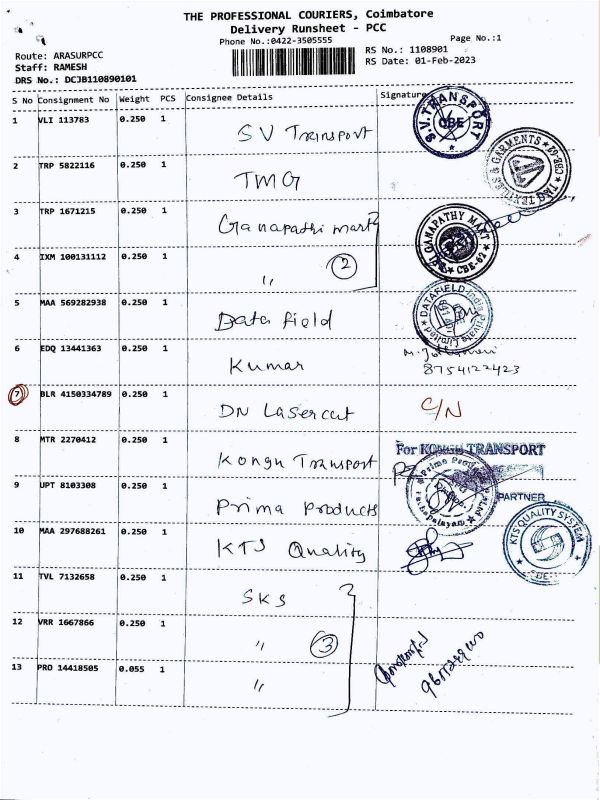 THE PROFESSIONAL COURIERS, Coimbatore
Delivery Runsheet - PCC
Phone No.:0422-3505555
Page No.:1
Route: ARASURPCC
RS No.: 1108901
Staff: RAMESH
RS Date: 01-Feb-2023
DRS No.: DCJB110890101
S No Consignment No Weight PCS Consignee Details Signature
1 VLI 113783 0.250 1 SV Transport S.V. TRANSPORT CBE
2 TRP 5822116 0.250 1 TMG TEXTILES & GARMENTS CBE-62
3 TRP 1671215 0.250 1 Ganapathi mart GANAPATHY MART CBE-62
4 IXM 100131112 0.250 1 〃 2
5 MAA 569282938 0.250 1 Data field DATAFIELD India Private Limited
6 EDQ 13441363 0.250 1 Kumar 8754122423
7 BLR 4150334789 0.250 1 DN Lasercut C/N
8 MTR 2270412 0.250 1 Kongu Transport For KONGU TRANSPORT
PARTNER
9 UPT 8103308 0.250 1 Prima Products Prima Products
10 MAA 297688261 0.250 1 KTS Quality KTS QUALITY SYSTEM
11 TVL 7132658 0.250 1 SKS
12 VRR 1667866 0.250 1 〃 3
13 PRO 14418505 0.055 1 〃